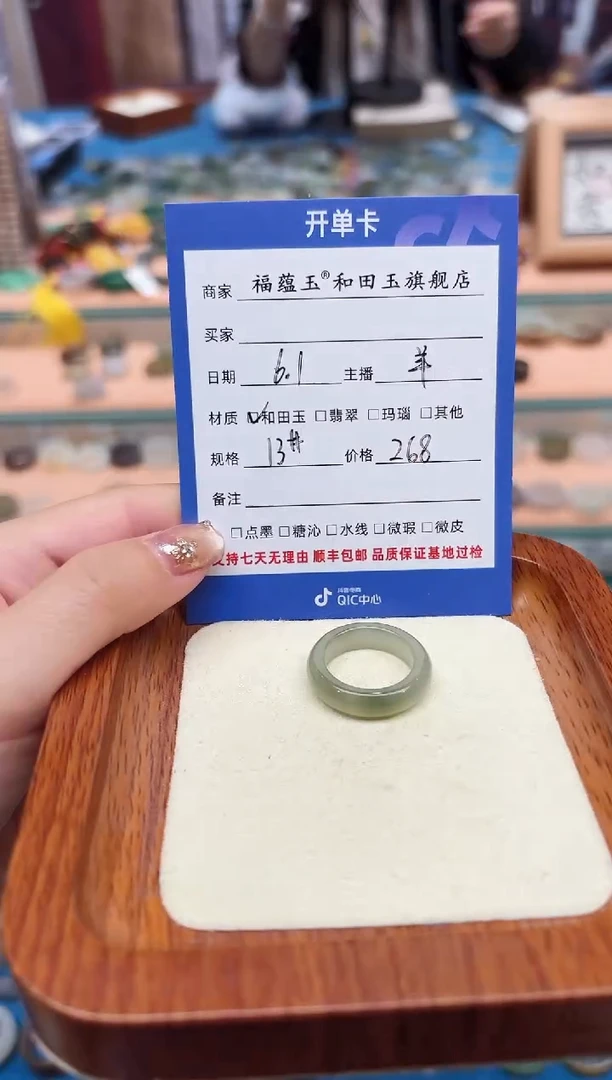 开单卡
商家 福蕴玉®和田玉旗舰店
买家
日期 6.1 主播 羊
材质 ☑和田玉 □翡翠 □玛瑙 □其他
规格 13# 价格 268
备注
□点墨 □糖沁 □水线 □微瑕 □微皮
支持七天无理由 顺丰包邮 品质保证基地过检
抖音电商
QIC中心